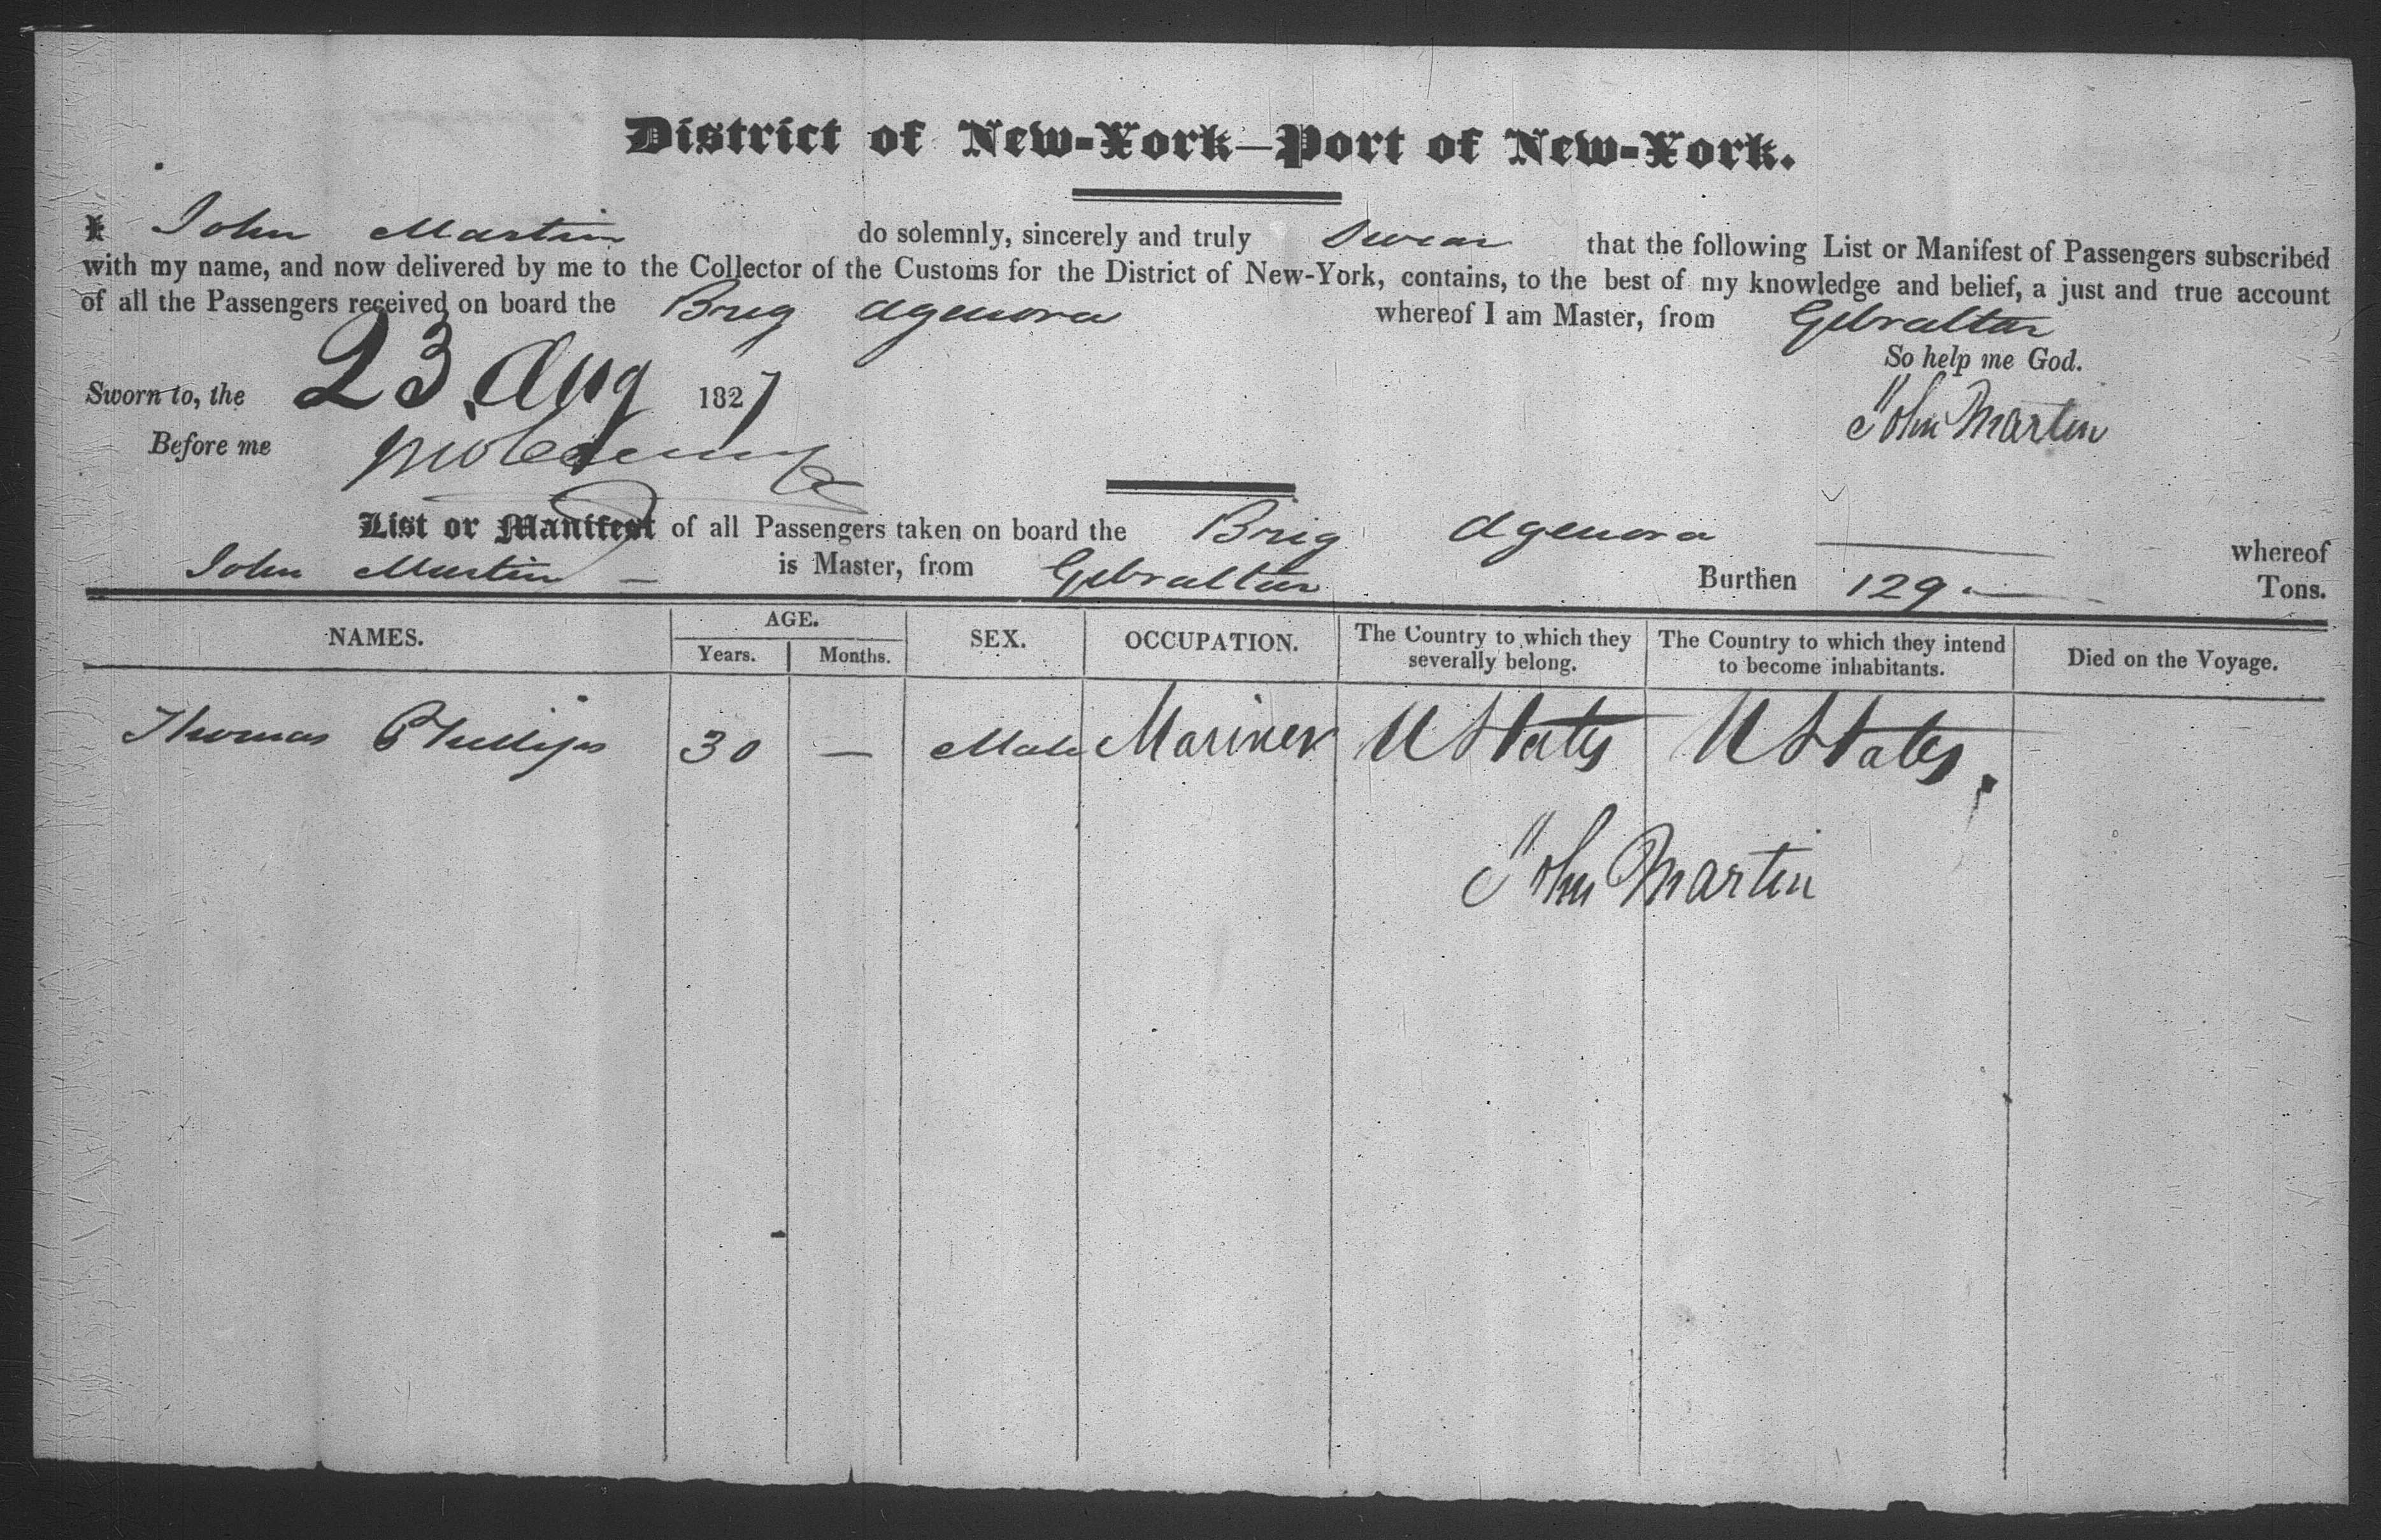 District of New-York—Port of New-York.
I John Martin do solemnly, sincerely and truly Swear that the following List or Manifest of Passengers subscribed
with my name, and now delivered by me to the Collector of the Customs for the District of New-York, contains, to the best of my knowledge and belief, a just and true account
of all the Passengers received on board the Brig Agenora whereof I am Master, from Gibraltar
So help me God.
Sworn to, the 23 Aug 1827
John Martin
Before me
List or Manifest of all Passengers taken on board the Brig Agenora whereof
John Martin — is Master, from Gibraltar Burthen 129 Tons.
NAMES. AGE. SEX. OCCUPATION. The Country to which they severally belong. The Country to which they intend to become inhabitants. Died on the Voyage.
Years. Months.
Thomas Phillips 30 — Male Mariner U States U States.
John Martin